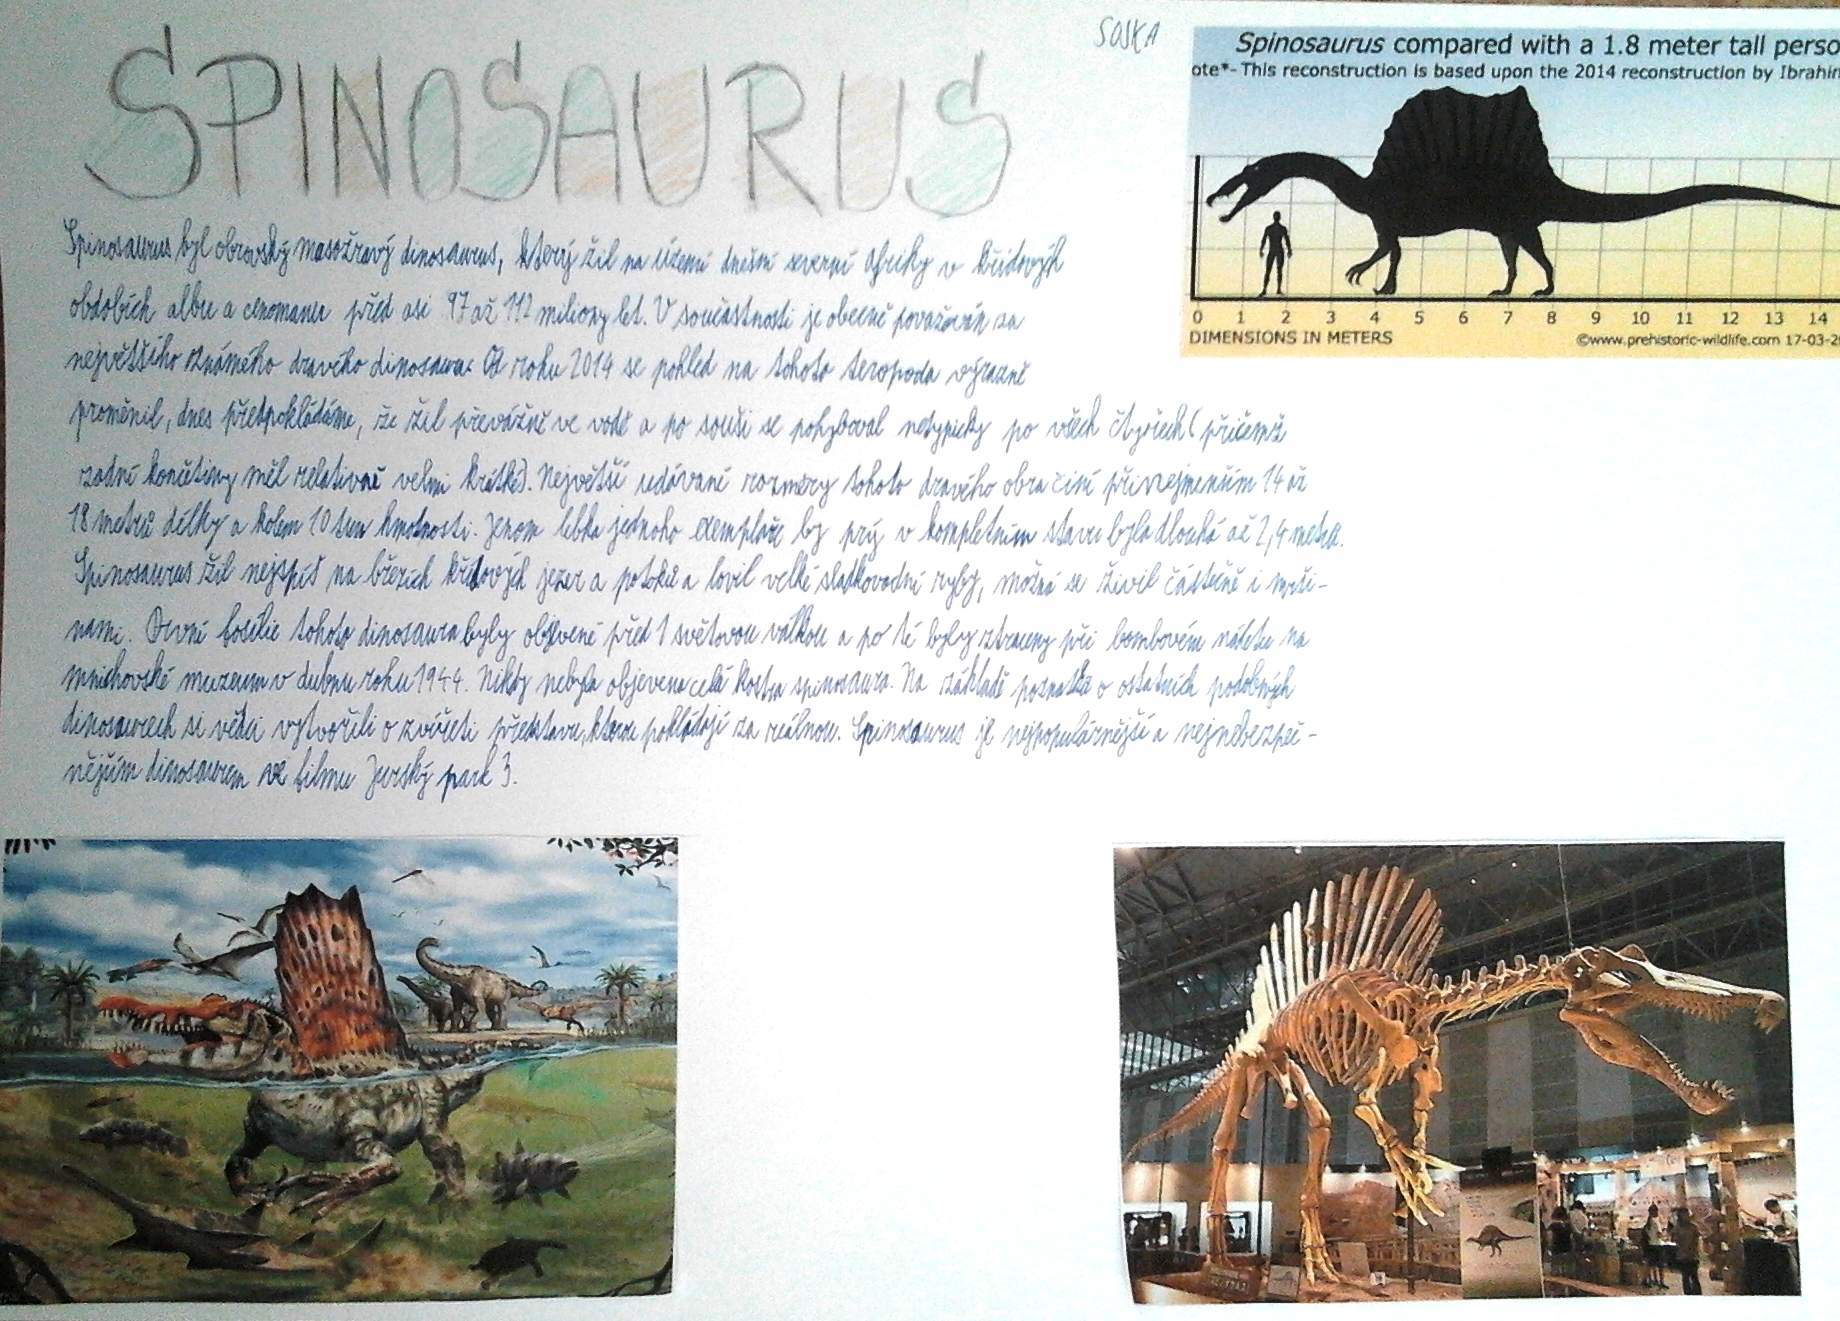 SPINOSAURUS
SOJKA
Spinosaurus compared with a 1.8 meter tall perso
ote*- This reconstruction is based upon the 2014 reconstruction by Ibrahim
0 1 2 3 4 5 6 7 8 9 10 11 12 13 14
DIMENSIONS IN METERS
©www.prehistoric-wildlife.com 17-03-20
Spinosaurus byl obrovský masožravý dinosaurus, který žil na území dnešní severní Afriky v křídových
obdobích albu a cenomanu před asi 97 až 112 miliony let. V součastnosti je obecně považován za
největšího známého dravého dinosaura. Od roku 2014 se pohled na tohoto teropoda výrazně
proměnil, dnes předpokládáme, že žil převážně ve vodě a po souši se pohyboval netypicky po všech čtyřech (přičemž
zadní končetiny měl relativně velmi krátké). Největší udávané rozměry tohoto dravého obra činí přinejmenším 14 až
18 metrů délky a kolem 10 tun hmotnosti. Jenom lebka jednoho exempláře by prý v kompletním stavu byla dlouhá až 2,4 metra.
Spinosaurus žil nejspíš na březích křídových jezer a potoků a lovil velké sladkovodní ryby, možná se živil částečně i mrši-
nami. První fosílie tohoto dinosaura byly objevené před 1 světovou válkou a po té byly ztraceny při bombovém náletu na
mnichovské muzeum v dubnu roku 1944. Nikdy nebyla objevena celá kostra spinosaura. Na základě poznatků o ostatních podobných
dinosaurech si vědci vytvořili o zvířeti představu, kterou pokládají za reálnou. Spinosaurus je nejpopulárnější a nejnebezpeč-
nějším dinosaurem ve filmu Jurský park 3.